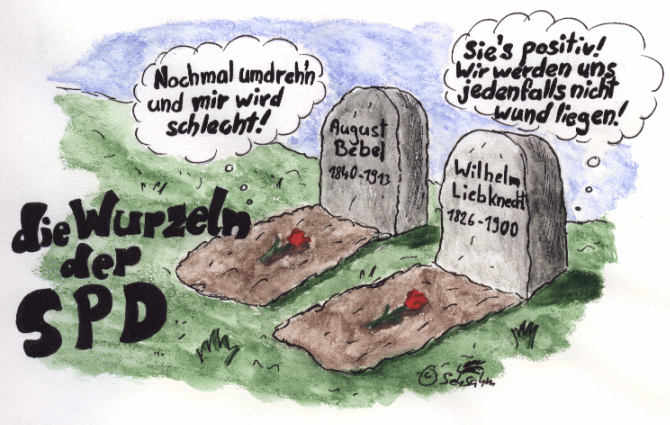 Nochmal umdreh'n
und mir wird
schlecht!
Sie's positiv!
Wir werden uns
jedenfalls nicht
wund liegen!
August
Bebel
1840-1913
Wilhelm
Liebknecht
1826-1900
die Wurzeln
der
SPD
©